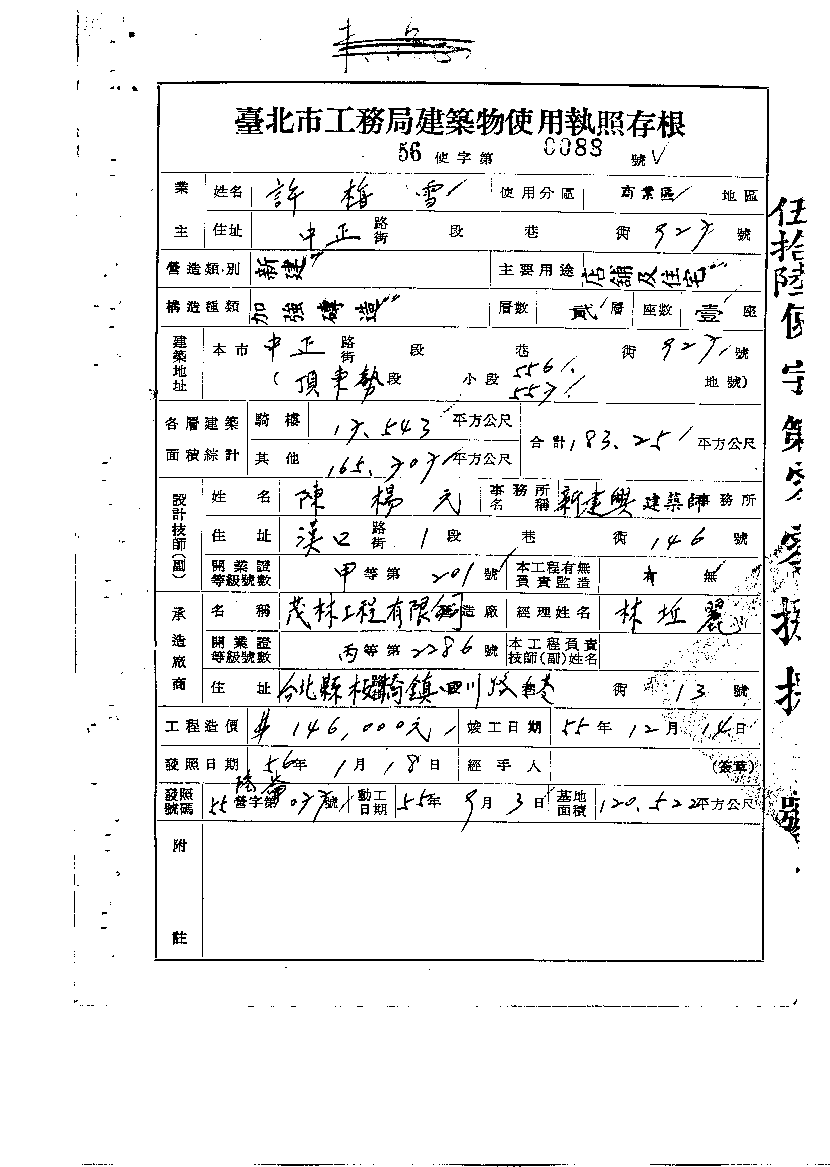 臺北市工務局建築物使用執照存根
56 使字第 0088 號
業主 姓名 許 梅 雪 使用分區 商業區 地區
住址 中正 路街 段 巷 街 927 號
營造類別 新建 主要用途 店舖及住宅
構造種類 加強磚造 層數 貳 層 座數 壹 座
建築地址 本市 中正 路街 段 巷 街 927 號
(頂東勢段 小段 556 557 地號)
各層建築面積綜計 騎樓 17.543 平方公尺 合計 183.25 平方公尺
其他 165.707 平方公尺
設計技師(副) 姓名 陳 楊 元 事務所名稱 新建興 建築師事務所
住址 漢口 路街 1 段 巷 街 146 號
開業證等級號數 甲等第 201 號 本工程有無負責監造 有 無
承造廠商 名稱 茂林工程有限公司 造廠 經理姓名 林 麗
開業證等級號數 丙等第 2286 號 本工程負責技師(副)姓名
住址 台北縣板橋鎮四川路 巷 街 13 號
工程造價 146,000元 竣工日期 55年12月14日
發照日期 56年1月18日 經手人 (簽章)
發照號碼 55 營字第 077 號 動工日期 55年9月3日 基地面積 120.522 平方公尺
附註
伍拾陸使字第零零捌捌號